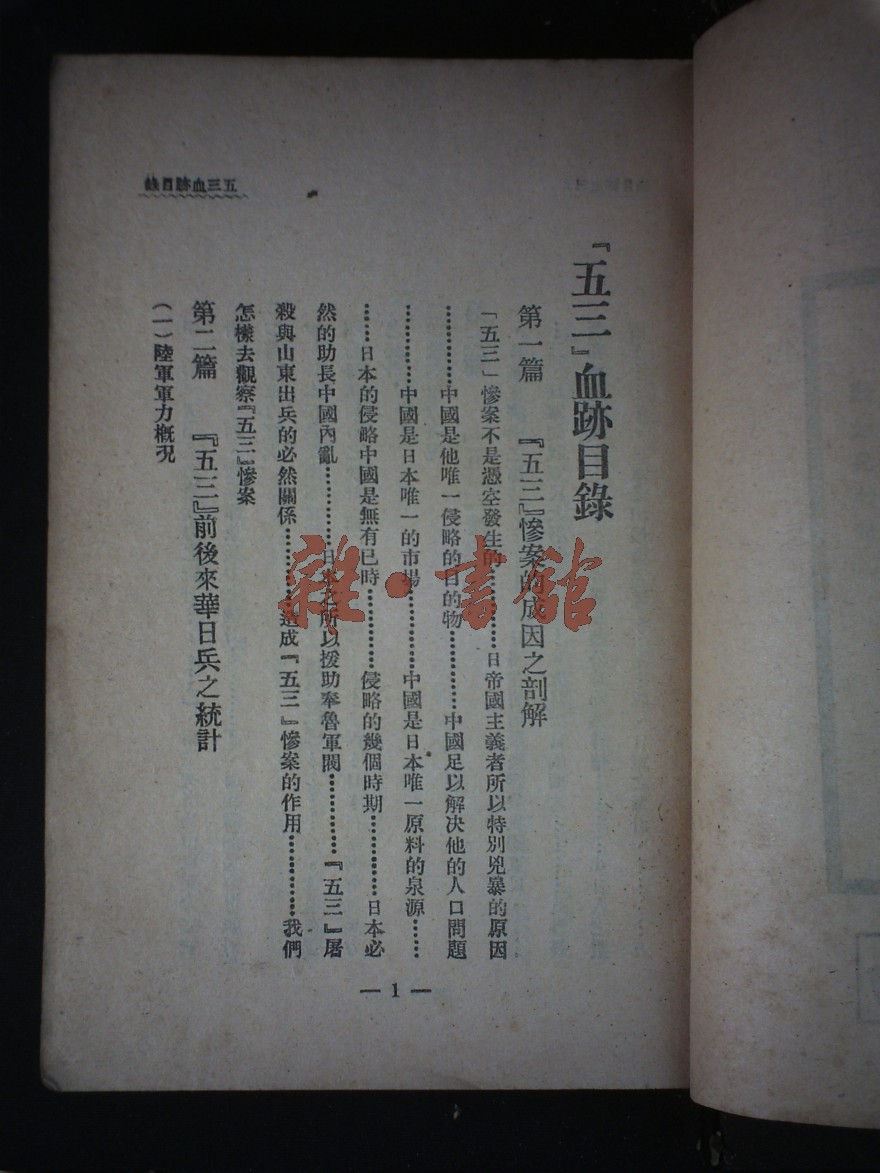 五三血跡目錄
「五三」血跡目錄
第一篇 『五三』慘案的成因之剖解
「五三」慘案不是憑空發生的…………日帝國主義者所以特別兇暴的原因
…………中國是他唯一侵略的目的物…………中國足以解決他的人口問題
…………中國是日本唯一的市場…………中國是日本唯一原料的泉源……
……日本的侵略中國是無有已時…………侵略的幾個時期…………日本必
然的助長中國內亂…………日本之所以援助奉魯軍閥…………『五三』屠
殺與山東出兵的必然關係…………造成『五三』慘案的作用…………我們
怎樣去觀察『五三』慘案
第二篇 『五三』前後來華日兵之統計
(一)陸軍軍力槪况
— 1 —
雜·書館